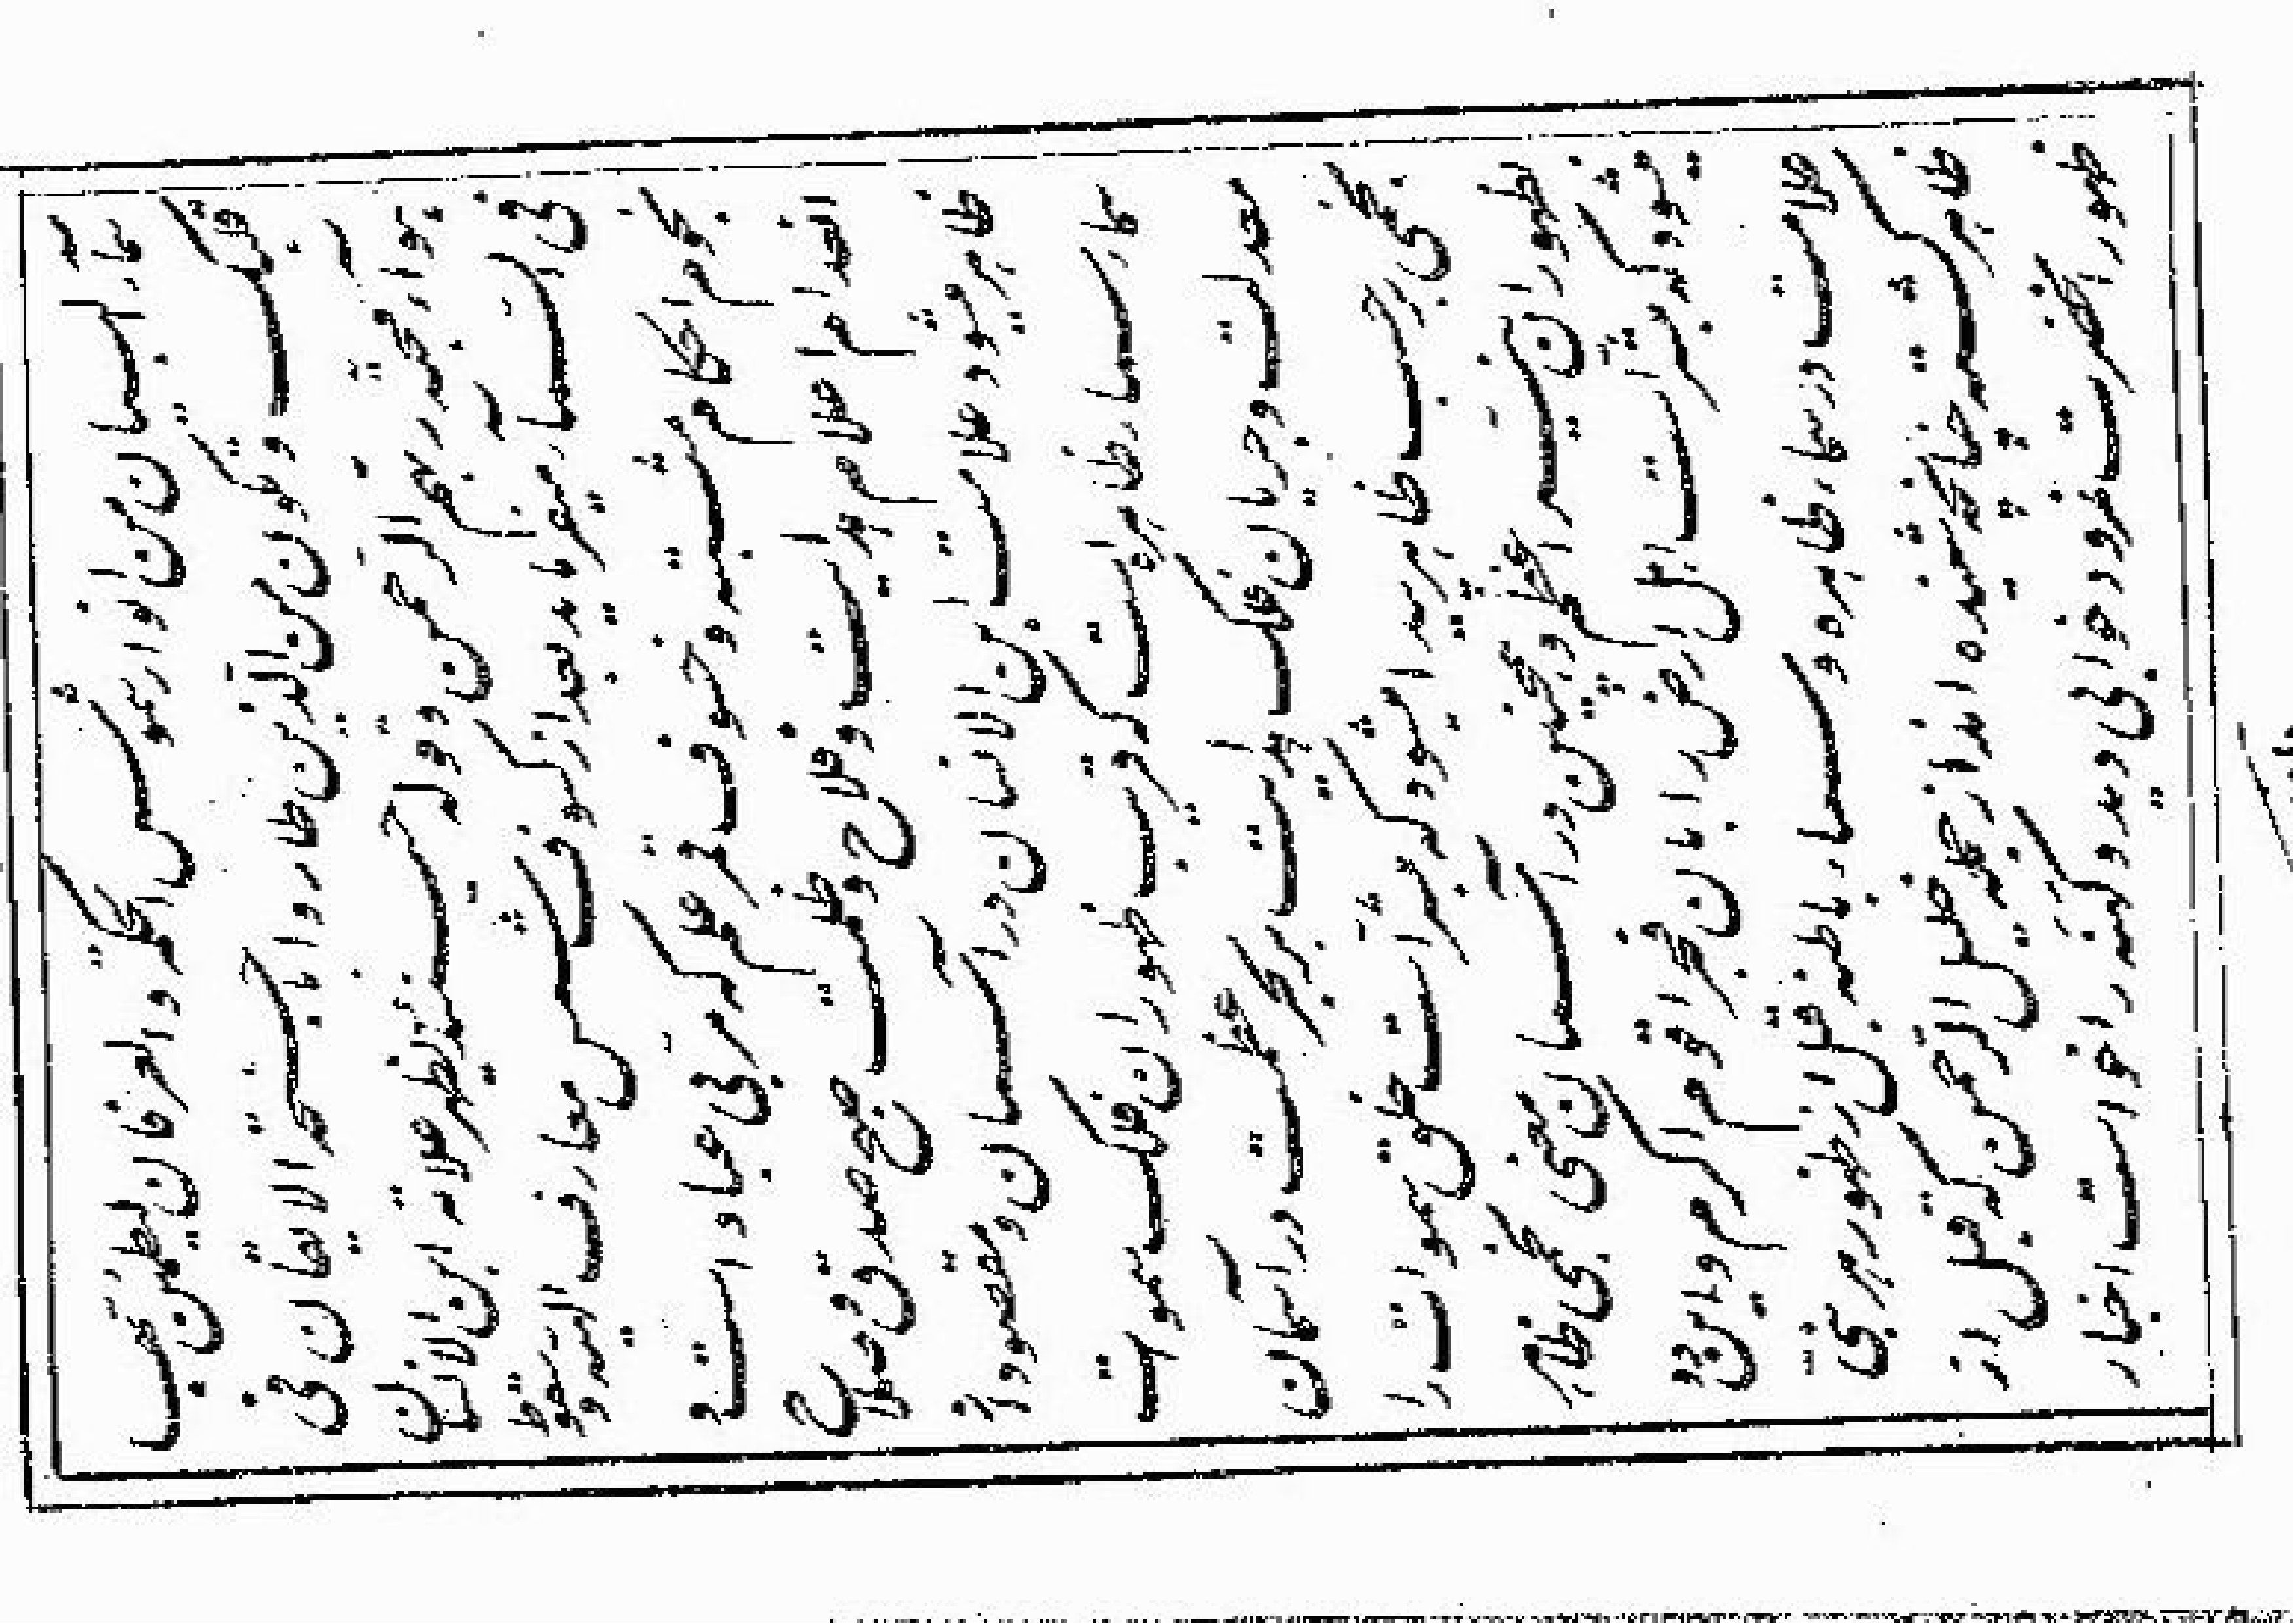 من انوار شموس الحکمة و العرفان لیطمئن
قلبک و تکون من الذین طاروا باجنحة الایقان فی
هواء محبة ربهم الرحمن و قوله حینئذ تظهر علامة ابن الانسان
فی السماء میفرماید بعد از کسوف شمس معارف الهیه و سقوط
نجوم احکام مثبته و خسوف قمر علم که مربی عباد است و
انعدام اعلام هدایت و فلاح و ظلمت صبح صدق و صلاح
ظاهر میشود علامت ابن الانسان در آسمان و مقصود از
سماء سماء ظاهره است که قریب ظهور آن فلک سموات
معدلت و جریان فلک هدایت بر بحر عظمت در آسمان
نجمی بر حسب ظاهر پیدا میشود که مبشر است خلق سموات را
بظهور آن نیر اعظم و همچنین در آسمان معنی نجمی ظاهر
میشود که مبشر است اهل ارض را بان فجر اقوم اکرم و این دو
علامت در سماء ظاهره و سماء باطنه قبل از ظهور هر نبیی
ظاهر گشته چنانچه شنیده‌اند از جمله خلیل الرحمن که قبل از
ظهور آنحضرت نمرود خوابی دید و کهنه را خواست اخبار